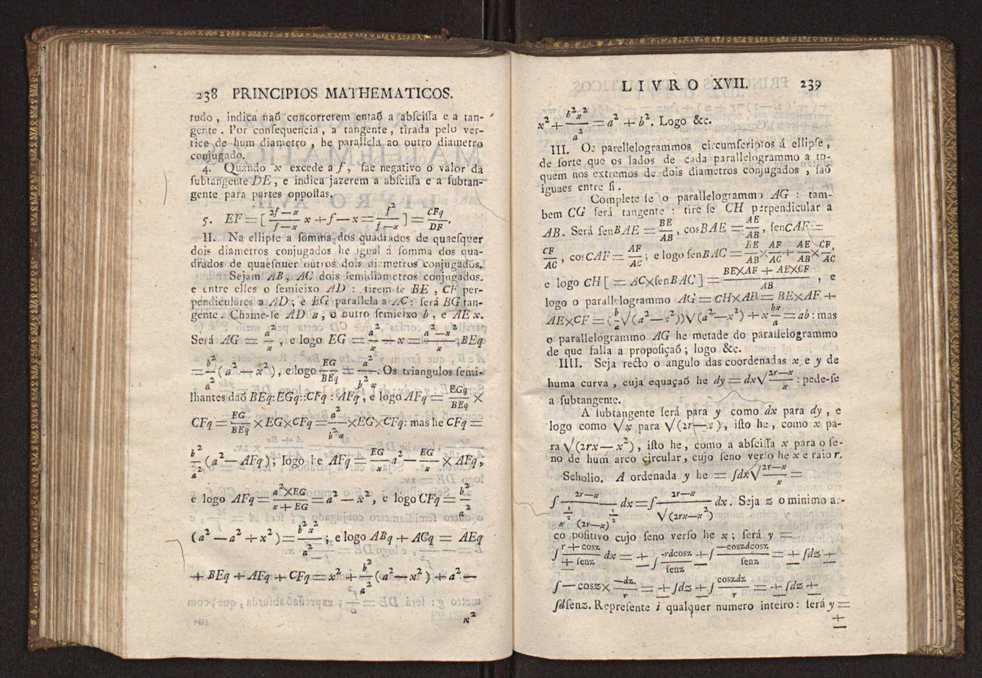 238 PRINCIPIOS MATHEMATICOS.
tudo, indica naõ concorrerem entaõ a absciſſa e a tan-
gente. Por conſequencia, a tangente, tirada pelo ver-
tice de hum diametro, he parallela ao outro diametro
conjugado.
4. Quando x excede a f, ſae negativo o valor da
ſubtangente DE, e indica jazerem a abſciſſa e a ſubtan-
gente para partes oppoſtas.
5. EF = [ (2f—x)/(f—x) x + f — x = f²/(f—x) ] = CFq/DF.
II. Na ellipſe a ſomma dos quadrados de quaeſquer
dois diametros conjugados he igual á ſomma dos qua-
drados de quaeſquer outros dois diametros conjugados.
Sejam AB, AC dois ſemidiametros conjugados,
e entre elles o ſemieixo AD: tirem-ſe BE, CF per-
pendiculares a AD; e EG parallela a AC: ſerá BG tan-
gente. Chame-ſe AD a, o outro ſemieixo b, e AE x.
Será AG = a²/x, e logo EG = a²/x — x = (a²—x²)/x, BEq
= b²/a² (a² — x²), e logo EG/BEq = a²/(b²x). Os triangulos ſemi-
lhantes daõ BEq:EGq::CFq:AFq, e logo AFq = EGq/BEq ×
CFq = EG/BEq × EG × CFq = a²/(b²x) × EG × CFq: mas he CFq =
b²/a² (a² — AFq); logo he AFq = EG/x a² — EG/x × AFq,
e logo AFq = (a²×EG)/(x + EG) = a² — x², e logo CFq = b²/a²
(a² — a² + x²) = b²x²/a²; e logo ABq + ACq = AEq
+ BEq + AFq + CFq = x² + b²/a² (a² — x²) + a² —
x²
LIVRO XVII. 239
x² + b²x²/a² = a² + b². Logo &c.
III. Os parellelogrammos circumſcriptos á ellipſe,
de ſorte que os lados de cada parallelogrammo a to-
quem nos extremos de dois diametros conjugados, ſaõ
iguaes entre ſi.
Complete ſe o parallelogrammo AG: tam-
bem CG ſerá tangente: tire ſe CH perpendicular a
AB. Será ſenBAE = BE/AB, cosBAE = AE/AB, ſenCAF =
CF/AC, cosCAF = AF/AC; e logo ſenBAC = BE/AB × AF/AC + AE/AB × CF/AC,
e logo CH [ = AC×ſenBAC ] = (BE×AF + AE×CF)/AB, e
logo o parallelogrammo AG = CH×AB = BE×AF +
AE×CF = (b/a √(a²—x²))√(a²—x²) + x bx/a = ab: mas
o parallelogrammo AG he metade do parallelogrammo
de que falla a propoſiçaõ; logo &c.
IIII. Seja recto o angulo das coordenadas x e y de
huma curva, cuja equaçaõ he dy = dx√(2r—x)/x: pede-ſe
a ſubtangente.
A ſubtangente ſerá para y como dx para dy, e
logo como √x para √(2r—x), iſto he, como x pa-
ra √(2rx — x²), iſto he, como a abſciſſa x para o ſe-
no de hum arco circular, cujo ſeno verſo he x e raio r.
Scholio. A ordenada y he = ſdx√(2r—x)/x =
ſ (2r—x)/(x^½ (2r—x)^½) dx = ſ (2r—x)/√(2rx—x²) dx. Seja z o minimo ar-
co poſitivo cujo ſeno verſo he x; ſerá y =
ſ (r + cosz)/(± ſenz) dx = ± ſ (-rdcosz)/ſenz ± ſ (—coszdcosz)/ſenz = ± ſdz ±
ſ — cosz × (—dz)/r = ± ſdz ± ſ (coszdz)/r = ± ſdz ±
ſdſenz. Repreſente i qualquer numero inteiro: ſerá y =
±